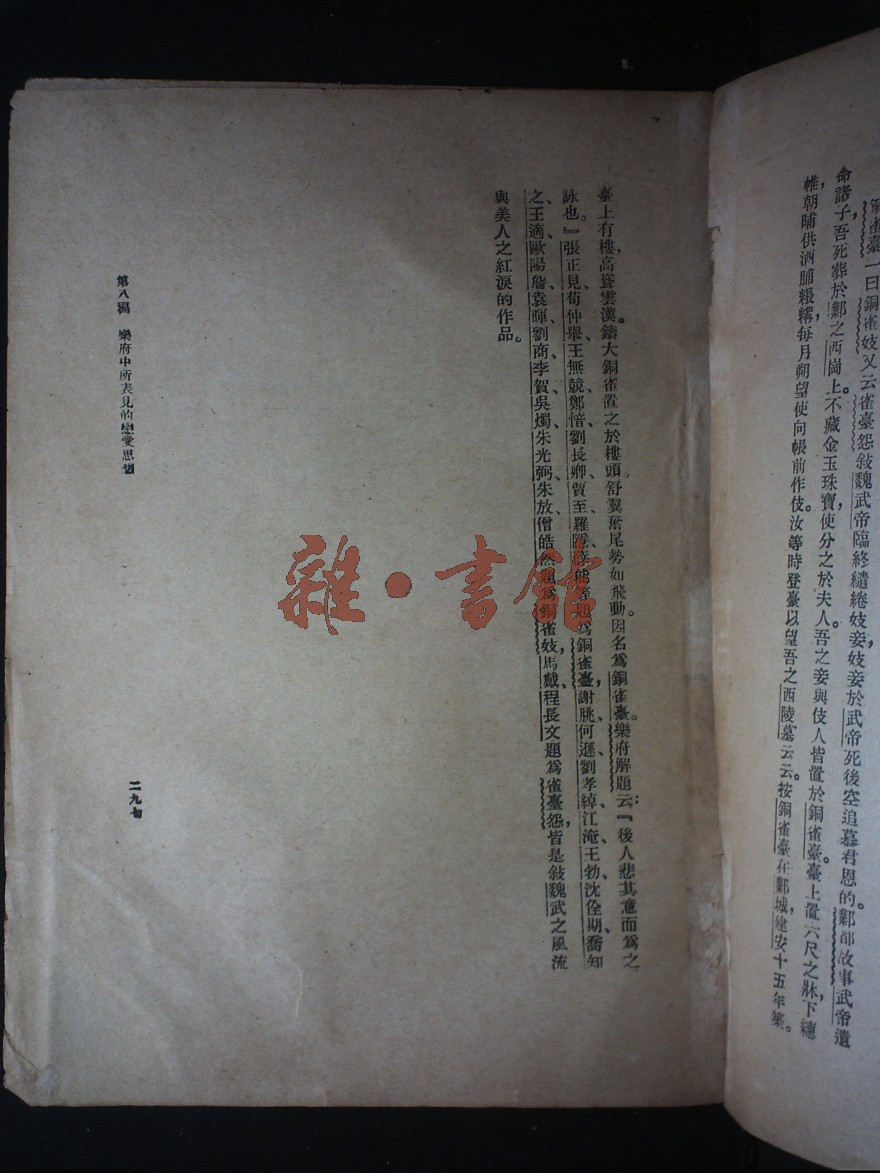 銅雀臺一曰銅雀妓又云雀臺怨敍魏武帝臨終繾綣妓妾妓妾於武帝死後空追慕君恩的。鄴都故事武帝遺
命諸子，吾死葬於鄴之西崗上。不藏金玉珠寶，使分之於夫人。吾之妾與伎人皆置於銅雀臺。臺上置六尺之牀，下繐
帷，朝晡供酒脯粻糒，每月朔望使向帳前作伎。汝等時登臺以望吾之西陵墓云云。按銅雀臺在鄴城，建安十五年築。
臺上有樓，高聳雲漢。鑄大銅雀置之於樓頭。舒翼奮尾，勢如飛動。因名爲銅雀臺。樂府解題云：『後人悲其意而爲之
詠也。』張正見、荀仲舉、王無競、鄭愔、劉長卿、賈至、羅隱、等題爲銅雀臺，謝朓、何遜、劉孝綽、江淹、王勃、沈佺期、喬知
之、王適、歐陽詹、袁暉、劉商、李賀、吳燭、朱光弼、朱放、僧皓然題爲銅雀妓，馬戴、程長文題爲雀臺怨，皆是敍魏武之風流
與美人之紅淚的作品。
第八編　樂府中所表見的戀愛思想
二九七
雜·書館